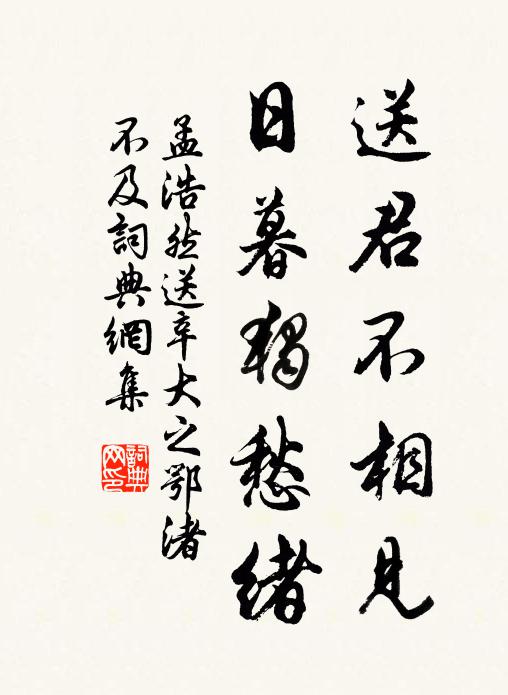 送君不相見
日暮獨愁緒
孟浩然送辛大之鄂渚
不及詞典網集
詞典網印